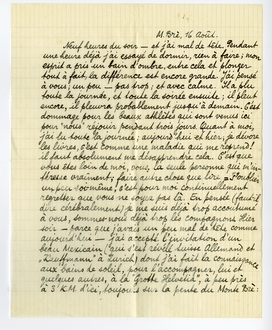 M. Brè, 16 Août.
Neuf heures du soir – et j'ai mal de tête. Pendant
une heure déjà j'ai essayé de dormir, rien à faire; mon
esprit a pris un bain d'ombre, entre cela et plonger
tout à fait, la différence est encore grande. J'ai pensé
à vous; un peu – pas trop; et avec calme. Il a plu
toute la journée, et toute la soirée ensuite; il pleut
encore, il pleuvra probablement jusqu'à demain. C'est
dommage pour les beaux athlètes qui sont venus ici
pour se réjouir pendant trois jours. Quant à moi,
j'ai lu toute la journée; aujourd'hui et hier; je dévore
les livres, c'est comme une maladie qui me reprend!
Il faut absolument me désapprendre cela. C'est que
vous êtes loin de moi, vous la seule personne qui m'in-
téresse vraiment; faire autre chose que lire = s'oublier
un peu soi-même, c'est pour moi continuellement
regretter que vous ne soyez pas là. En pensée (faudrait
dire cérébralement) je me suis déjà trop accoutumé
à vous, sommes-nous déjà trop les compagnons. Hier
soir – parce que j'avais un peu mal de tête comme
aujourd'hui – j'ai accepté l'invitation d'un
beau Mexicain (qui s'est révélé Suisse Allemand et
"Kauffmann" à Zurich) dont j'ai fait la connaissance
aux bains de soleil, pour l'accompagner, lui et
quelques autres, à la Grotte Helvetia, à peu près
à 3 K.M. d'ici, toujours sur la pente du Monte Brè: